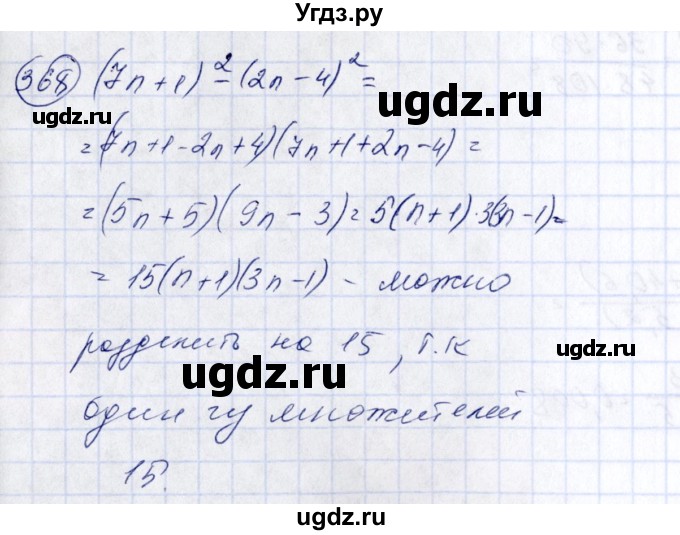 Угдз.ру
368 (7n+1)²-(2n-4)²=
ugdz.ru ugdz.ru
=(7n+1-2n+4)(7n+1+2n-4)=
=(5n+5)(9n-3)=5(n+1)·3(3n-1)=
=15(n+1)(3n-1) - можно
разделить на 15, т.к
ugdz.ru ugdz.ru
один из множителей
15.
ugdz.ru